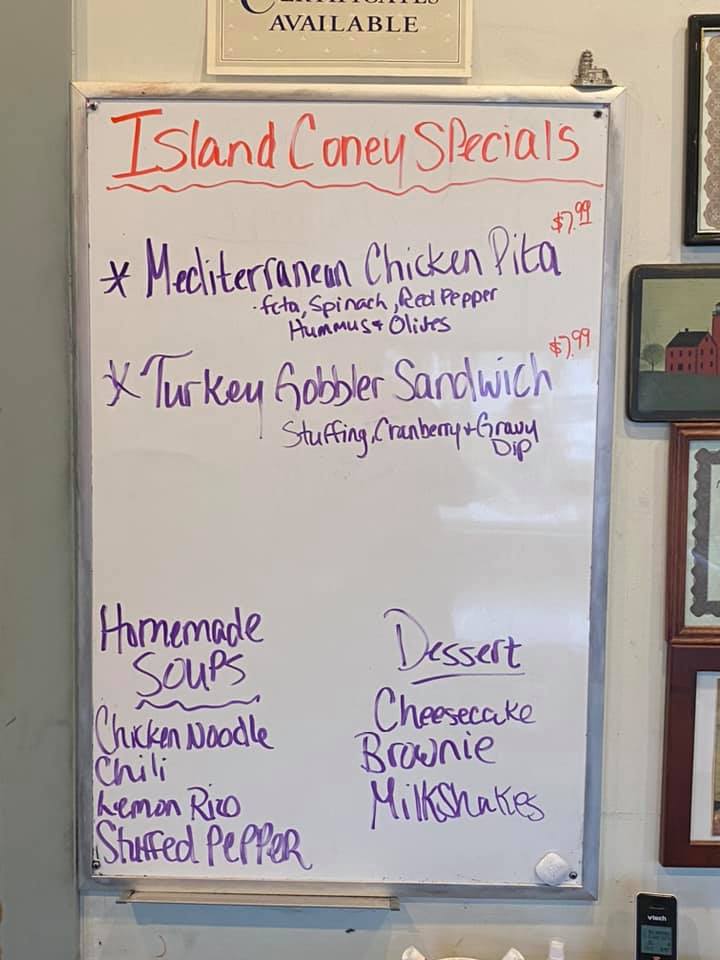 AVAILABLE
Island Coney Specials
$7.99
* Mediterranean Chicken Pita
- feta, Spinach, Red Pepper
Hummus + Olives
$7.99
* Turkey Gobbler Sandwich
Stuffing, Cranberry + Gravy
Dip
Homemade
Soups
Chicken Noodle
Chili
Lemon Rizo
Stuffed Pepper
Dessert
Cheesecake
Brownie
Milkshakes
vtech